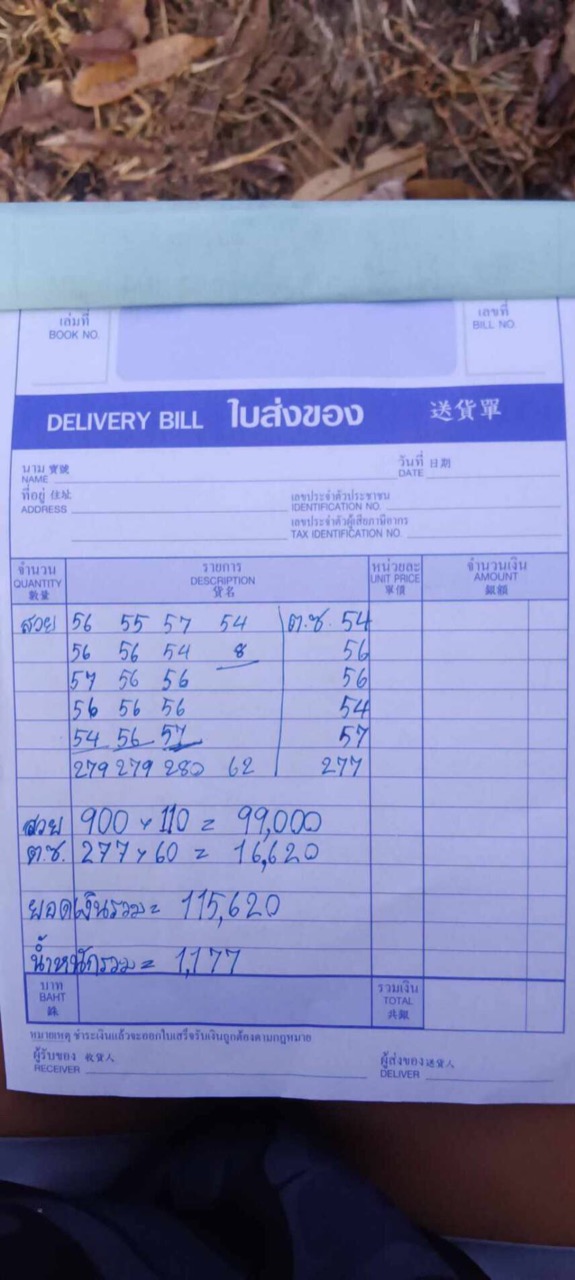 เล่มที่
BOOK NO.
เลขที่
BILL NO.
DELIVERY BILL ใบส่งของ 送貨單
นาม 寶號
NAME
วันที่ 日期
DATE
ที่อยู่ 住址
ADDRESS
เลขประจำตัวประชาชน
IDENTIFICATION NO.
เลขประจำตัวผู้เสียภาษีอากร
TAX IDENTIFICATION NO.
จำนวน รายการ หน่วยละ จำนวนเงิน
QUANTITY DESCRIPTION UNIT PRICE AMOUNT
數量 貨名 單價 銀額
สวย 56 55 57 54 ต.ช. 54
56 56 54 8 56
57 56 56 56
56 56 56 54
54 56 57 57
279 279 280 62 277
สวย 900 x 110 = 99,000
ต.ช. 277 x 60 = 16,620
ยอดเงินรวม = 115,620
น้ำหนักรวม = 1,177
บาท รวมเงิน
BAHT TOTAL
銖 共銀
หมายเหตุ ชำระเงินแล้วจะออกใบเสร็จรับเงินถูกต้องตามกฎหมาย
ผู้รับของ 收貨人
RECEIVER
ผู้ส่งของ 送貨人
DELIVER